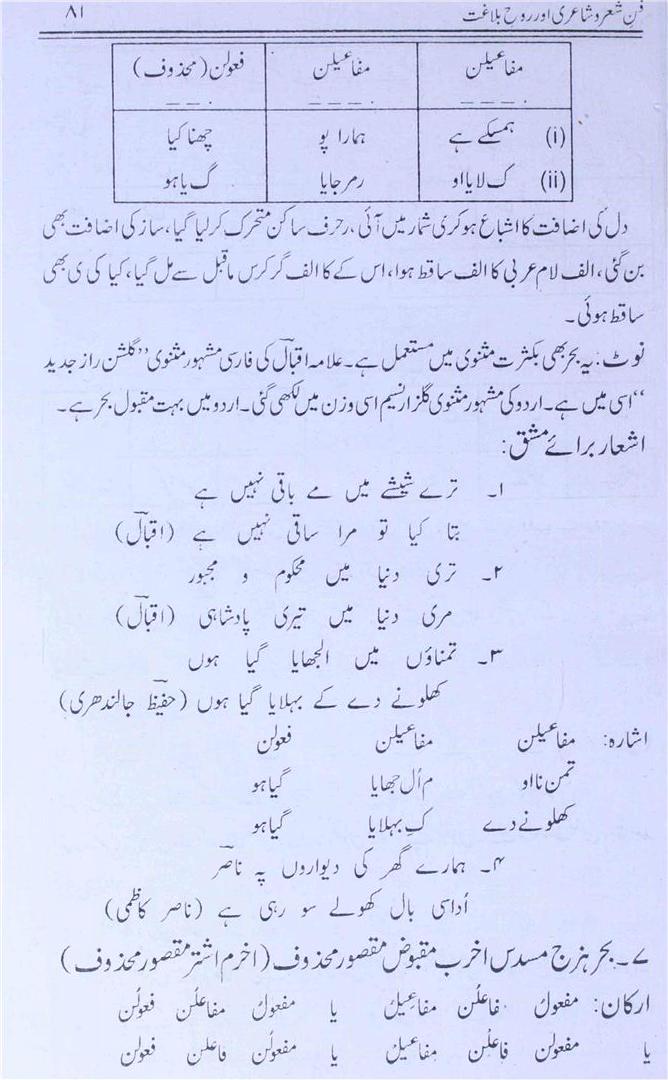 فنِ شعر و شاعری اور روحِ بلاغت ۸۱
مفاعیلن مفاعیلن فعولن (محذوف)
۔ ـ ـ ـ ۔ ـ ـ ـ ۔ ـ ـ
(i) ہمسکے ہے ہمارا پو چھنا کیا
(ii) ک لایا او رمر جایا گ یا ہو
دل کی اضافت کا اشباع ہو کر ی شمار میں آئی، ر حرف ساکن متحرک کر لیا گیا، ساز کی اضافت بھی
بن گئی، الف لام عربی کا الف ساقط ہوا، اس کے کا الف گر کر س ماقبل سے مل گیا، کیا کی ی بھی
ساقط ہوئی۔
نوٹ: یہ بحر بھی بکثرت مثنوی میں مستعمل ہے۔ علامہ اقبالؔ کی فارسی مشہور مثنوی ”گلشن راز جدید
“ اسی میں ہے۔ اردو کی مشہور مثنوی گلزار نسیم اسی وزن میں لکھی گئی۔ اردو میں بہت مقبول بحر ہے۔
اشعار برائے مشق:
۱۔ ترے شیشے میں مے باقی نہیں ہے
بتا کیا تو مرا ساقی نہیں ہے (اقبالؔ)
۲۔ تری دنیا میں محکوم و مجبور
مری دنیا میں تیری پادشاہی (اقبالؔ)
۳۔ تمناؤں میں الجھایا گیا ہوں
کھلونے دے کے بہلایا گیا ہوں (حفیظؔ جالندھری)
اشارہ: مفاعیلن مفاعیلن فعولن
تمن نا او م اُل جھایا گیا ہو
کھلونے دے کِ بہلایا گیا ہو
۴۔ ہمارے گھر کی دیواروں پہ ناصرؔ
اُداسی بال کھولے سو رہی ہے (ناصر کاظمی)
۷۔ بحر ہزج مسدس اخرب مقبوض مقصور محذوف (اخرم اشتر مقصور محذوف)
ارکان: مفعولُ فاعلُن مفاعیلُ یا مفعولُ مفاعلُن فعولُن
یا مفعولن فاعلُن مفاعیلُ یا مفعولُن فاعلن فعولن